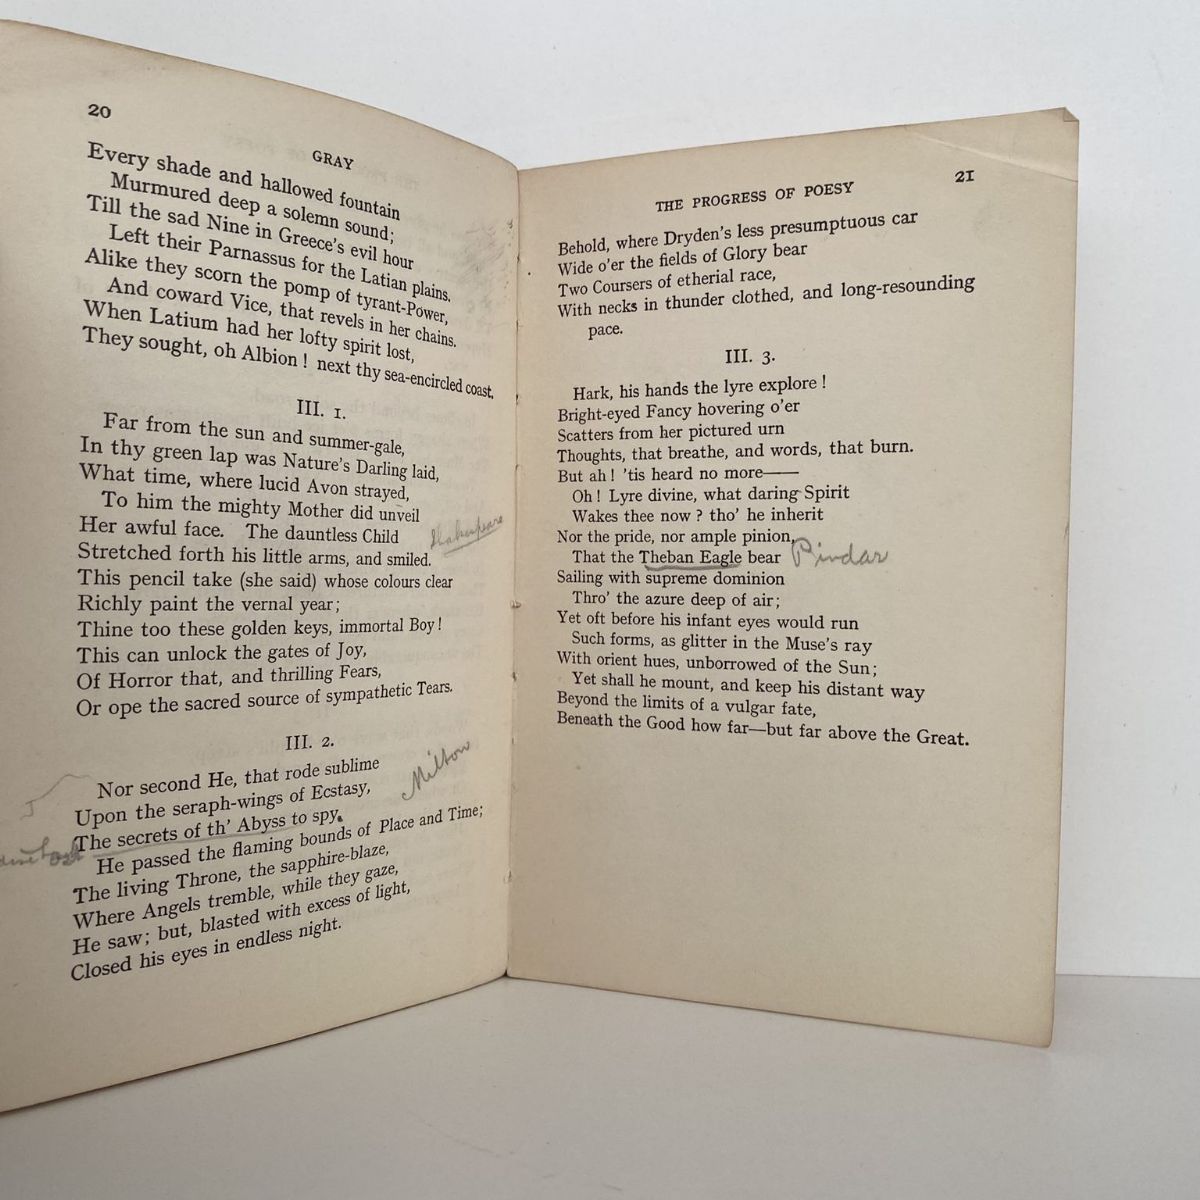 20
GRAY
Every shade and hallowed fountain
Murmured deep a solemn sound;
Till the sad Nine in Greece's evil hour
Left their Parnassus for the Latian plains.
Alike they scorn the pomp of tyrant-Power,
And coward Vice, that revels in her chains.
When Latium had her lofty spirit lost,
They sought, oh Albion! next thy sea-encircled coast.
III. 1.
Far from the sun and summer-gale,
In thy green lap was Nature's Darling laid,
What time, where lucid Avon strayed,
To him the mighty Mother did unveil
Her awful face. The dauntless Child Shakespeare
Stretched forth his little arms, and smiled.
This pencil take (she said) whose colours clear
Richly paint the vernal year;
Thine too these golden keys, immortal Boy!
This can unlock the gates of Joy,
Of Horror that, and thrilling Fears,
Or ope the sacred source of sympathetic Tears.
III. 2.
Nor second He, that rode sublime
Upon the seraph-wings of Ecstasy, Milton
The secrets of th' Abyss to spy.
He passed the flaming bounds of Place and Time;
The living Throne, the sapphire-blaze,
Where Angels tremble, while they gaze,
He saw; but, blasted with excess of light,
Closed his eyes in endless night.
THE PROGRESS OF POESY
21
Behold, where Dryden's less presumptuous car
Wide o'er the fields of Glory bear
Two Coursers of etherial race,
With necks in thunder clothed, and long-resounding
pace.
III. 3.
Hark, his hands the lyre explore!
Bright-eyed Fancy hovering o'er
Scatters from her pictured urn
Thoughts, that breathe, and words, that burn.
But ah! 'tis heard no more——
Oh! Lyre divine, what daring Spirit
Wakes thee now? tho' he inherit
Nor the pride, nor ample pinion,
That the Theban Eagle bear Pindar
Sailing with supreme dominion
Thro' the azure deep of air;
Yet oft before his infant eyes would run
Such forms, as glitter in the Muse's ray
With orient hues, unborrowed of the Sun;
Yet shall he mount, and keep his distant way
Beyond the limits of a vulgar fate,
Beneath the Good how far—but far above the Great.